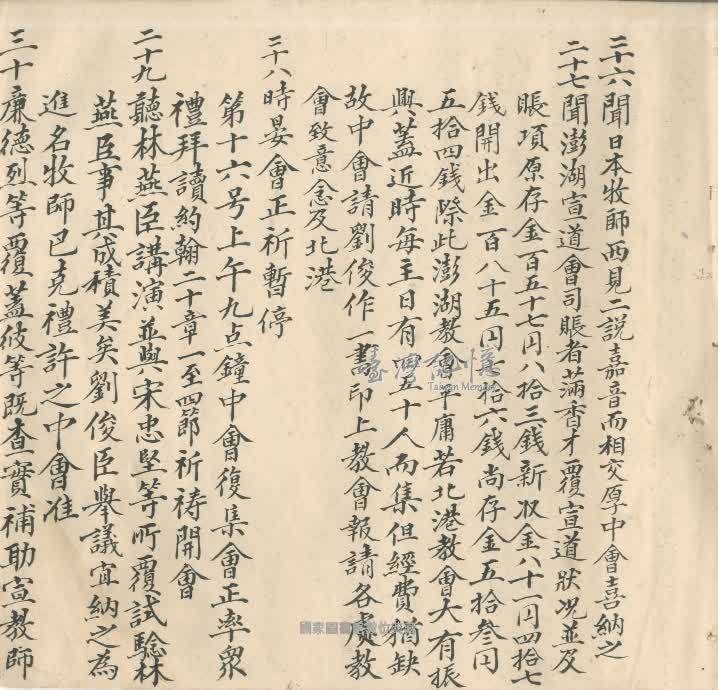 二十六聞日本牧師西見二說嘉音而相交厚中會喜納之
二十七聞澎湖宣道會司賬者蒲香才覆宣道狀况並及
賬項原存金百五十七円八拾三錢新收金八十一円四拾七
錢開出金百八十五円七拾六錢尚存金五拾叁円
五拾四錢際此澎湖教會平庸若北港教會大有振
興蓋近時每主日有五十人而集但經費猶缺
故中會請劉俊作一書印上教會報請各處教
會致意念及北港
二十八時晏會正祈暫停
第十六号上午九点鐘中會復集會正率衆
禮拜讀約翰二十章一至四節祈祷開會
二十九聽林燕臣講演並與宋忠堅等所覆試驗林
燕臣事其成積美矣劉俊臣舉議宜納之為
進名牧師巴克禮許之中會准
三十廉德烈等覆蓋彼等既查實補助宣教師
臺灣記憶
Taiwan Memory
國家圖書館